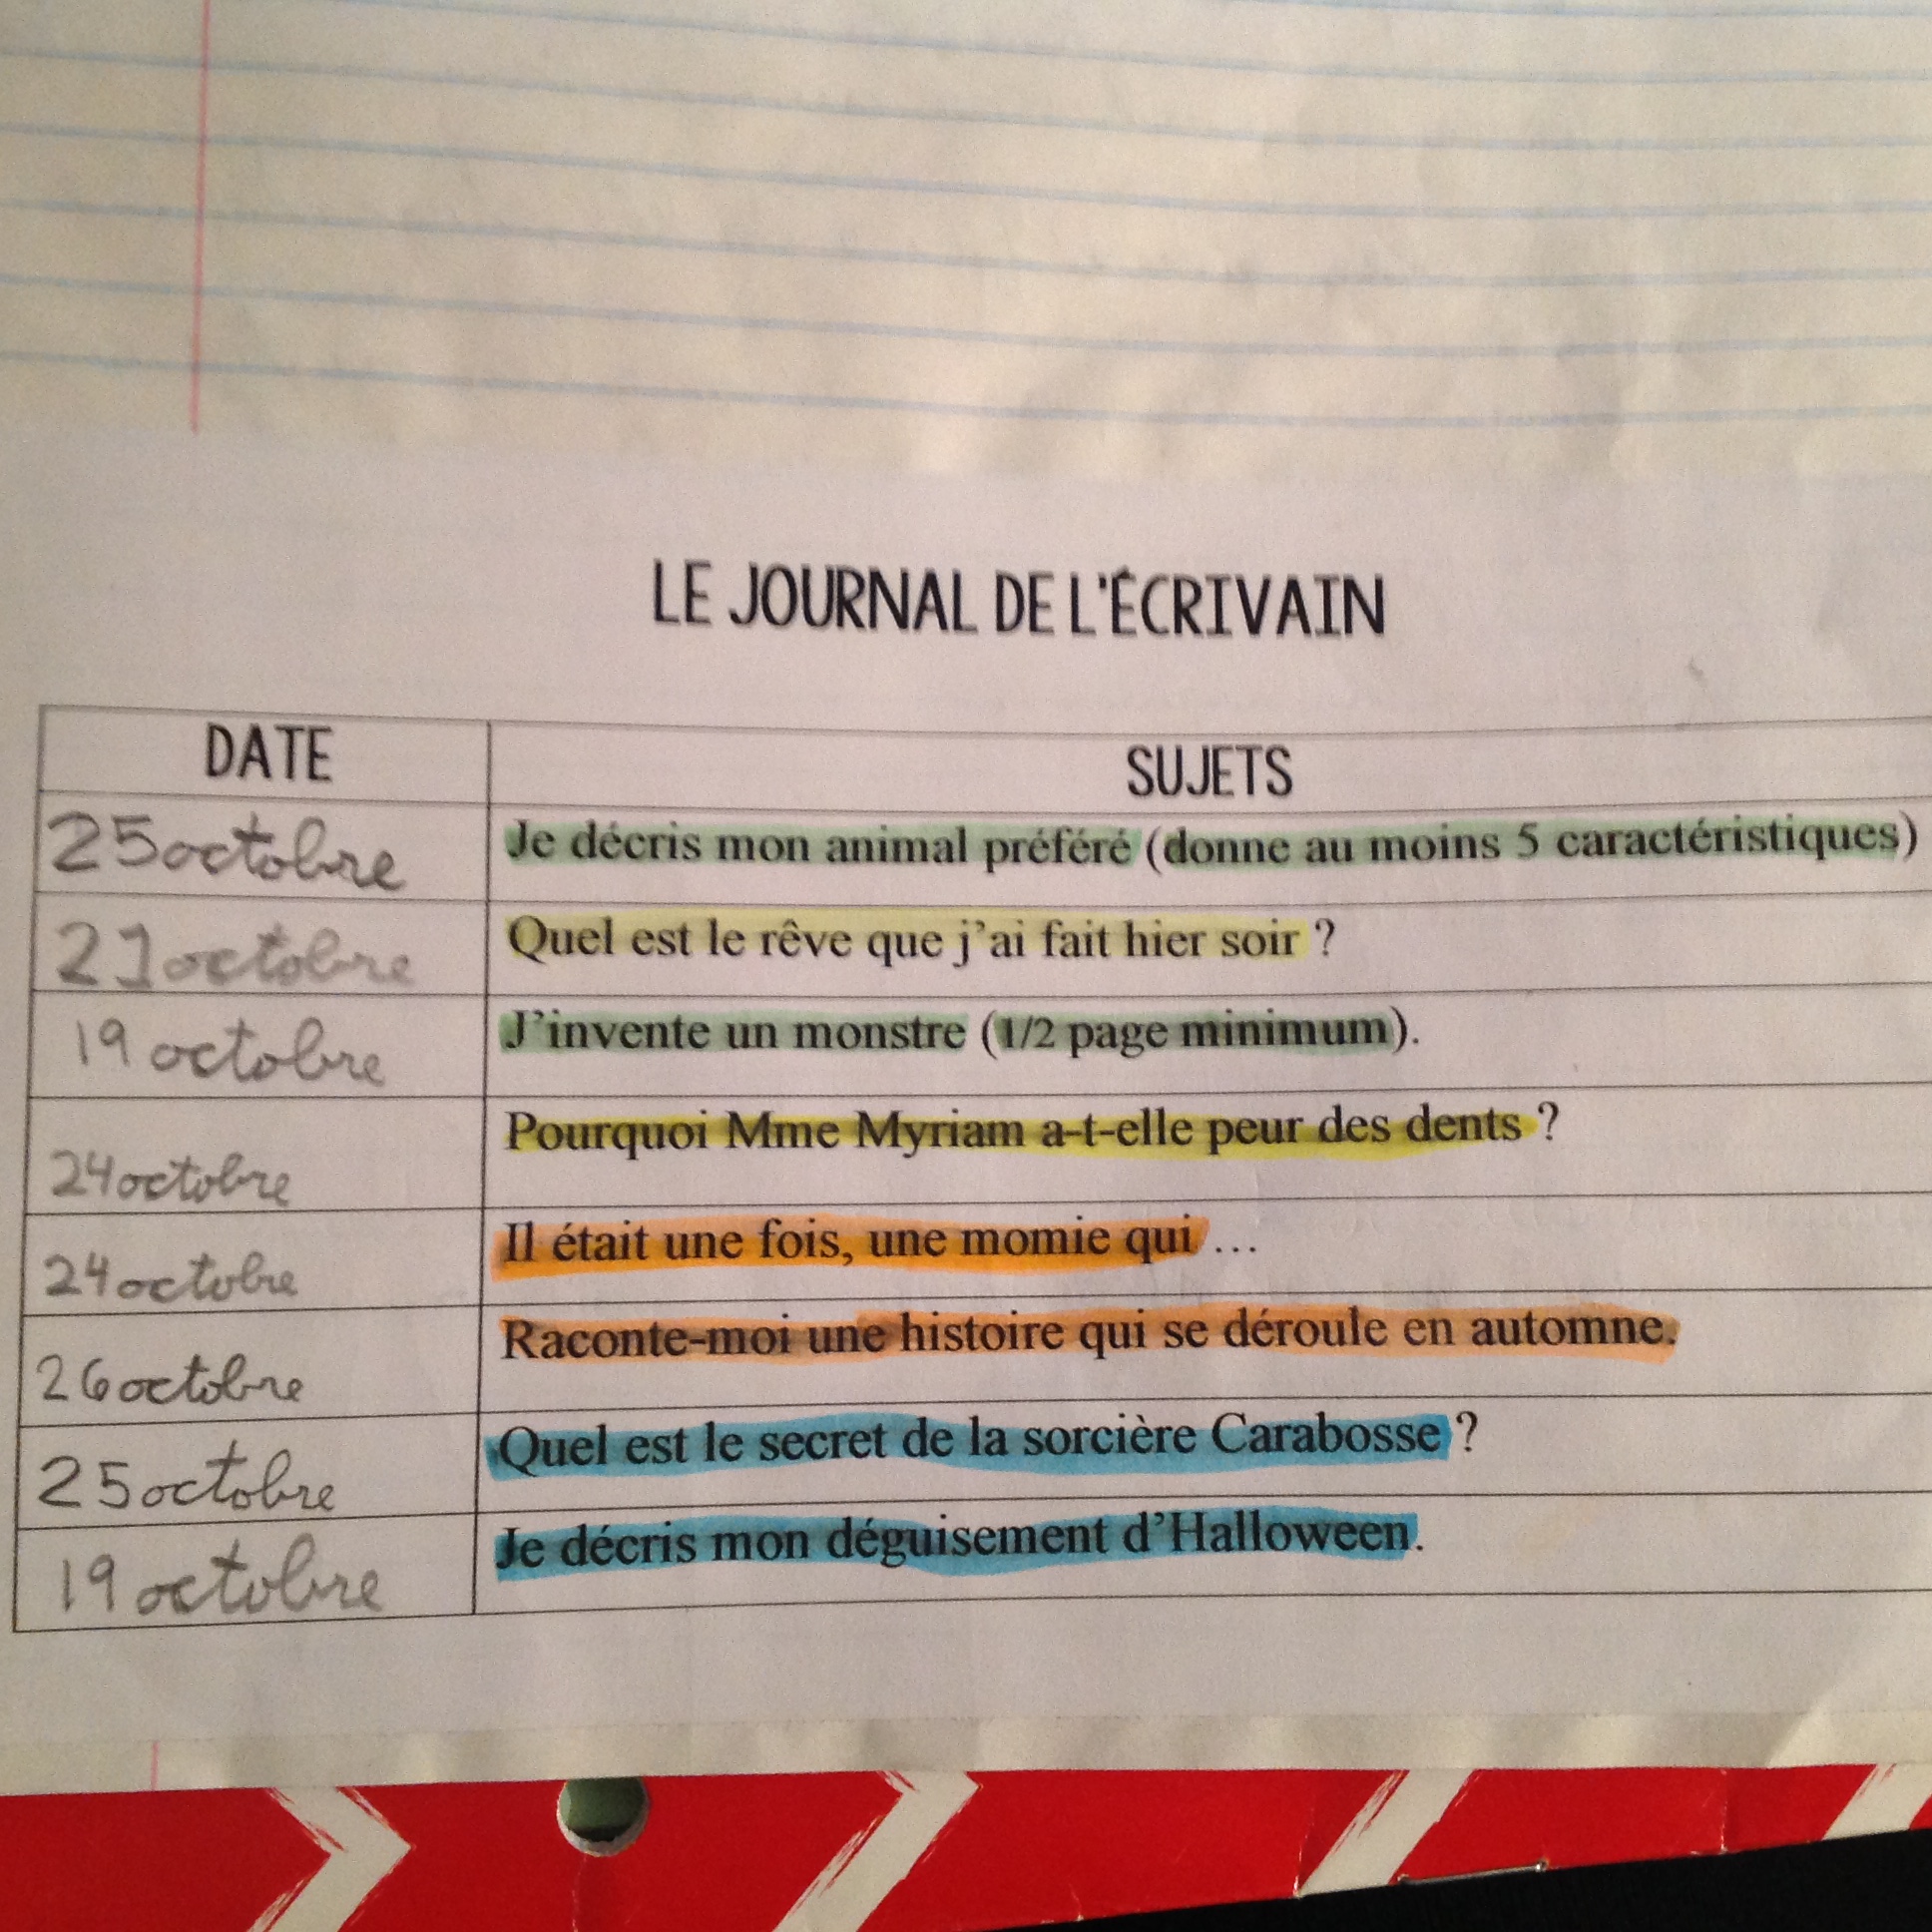 LE JOURNAL DE L'ÉCRIVAIN
DATE SUJETS
25 octobre Je décris mon animal préféré (donne au moins 5 caractéristiques)
21 octobre Quel est le rêve que j'ai fait hier soir ?
19 octobre J'invente un monstre (1/2 page minimum).
24 octobre Pourquoi Mme Myriam a-t-elle peur des dents ?
24 octobre Il était une fois, une momie qui ...
26 octobre Raconte-moi une histoire qui se déroule en automne.
25 octobre Quel est le secret de la sorcière Carabosse ?
19 octobre Je décris mon déguisement d'Halloween.